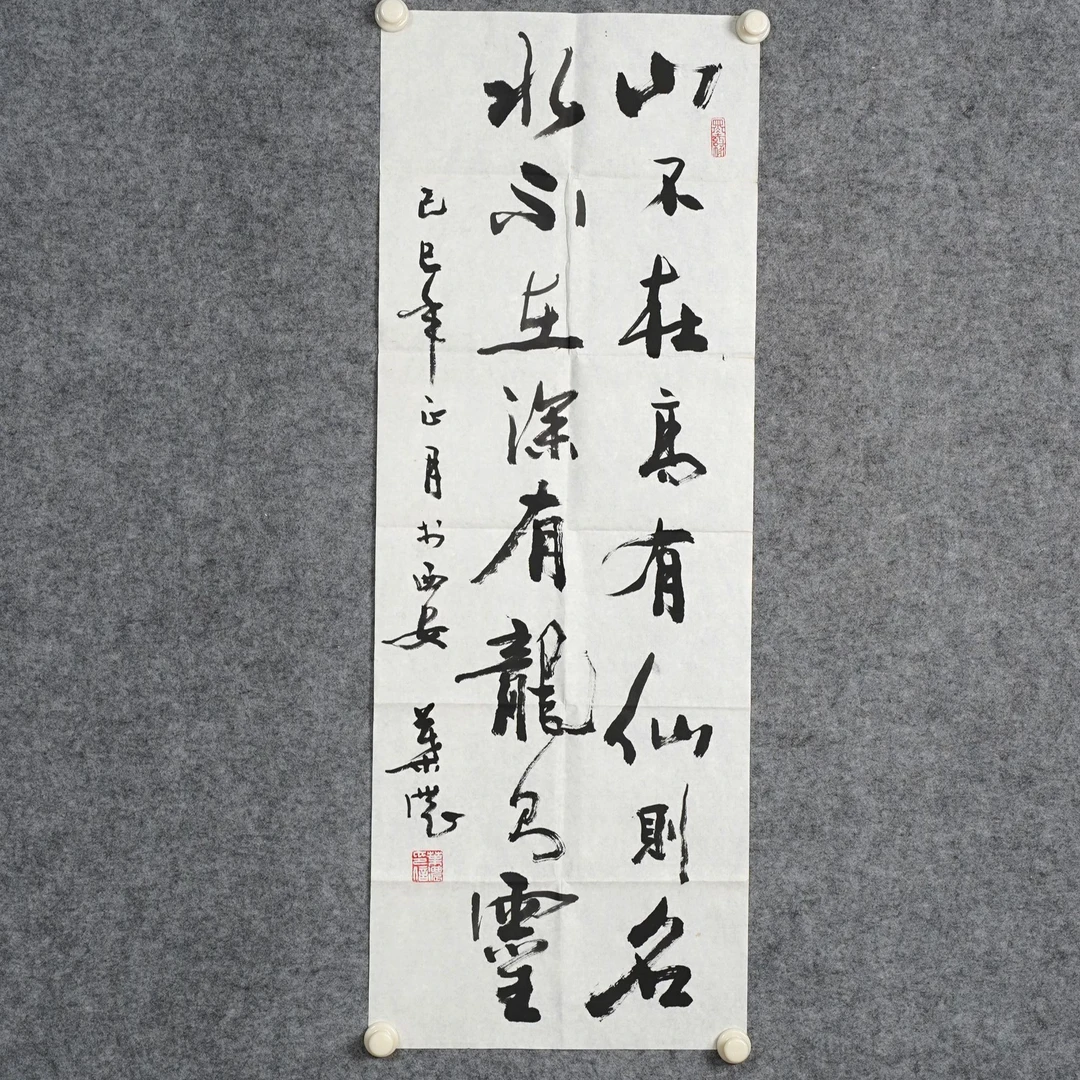 山不在高有仙則名
水不在深有龍則靈
己巳年正月书西安 葉濃